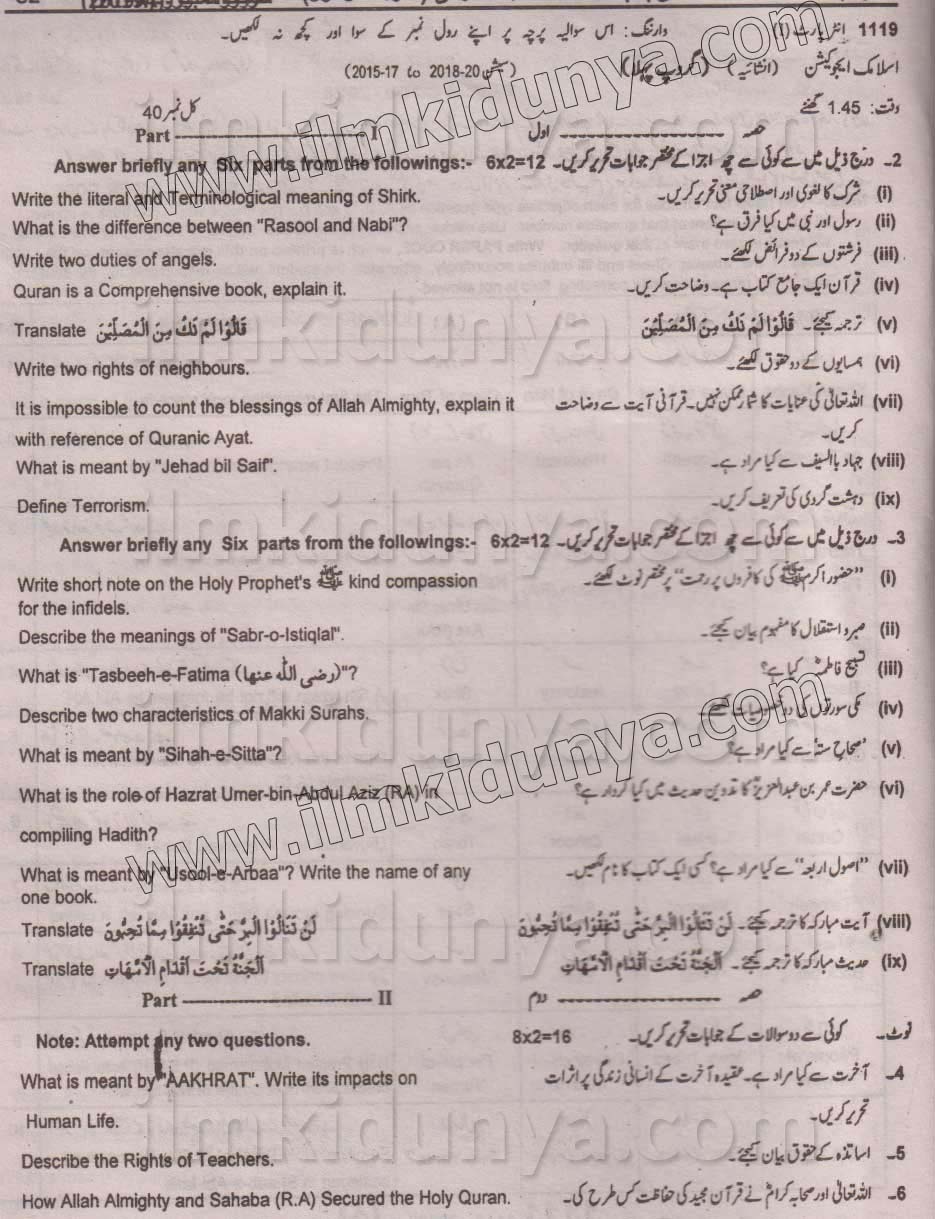 1119 انٹر پارٹ (I) وارننگ: اس سوالیہ پرچہ پر اپنے رول نمبر کے سوا اور کچھ نہ لکھیں۔
اسلامک ایجوکیشن (انشائیہ) (گروپ پہلا) (سیشن 20-2018 to 2015-17)
وقت: 1.45 گھنٹے کل نمبر 40
حصہ ------------------ اول Part ------------------ I
Answer briefly any Six parts from the followings:- 6x2=12 2۔ درج ذیل میں سے کوئی سے چھ اجزا کے مختصر جوابات تحریر کریں۔
Write the literal and Terminological meaning of Shirk. (i) شرک کا لغوی اور اصطلاحی معنی تحریر کریں۔
What is the difference between "Rasool and Nabi"? (ii) رسول اور نبی میں کیا فرق ہے؟
Write two duties of angels. (iii) فرشتوں کے دو فرائض لکھئے۔
Quran is a Comprehensive book, explain it. (iv) قرآن ایک جامع کتاب ہے۔ وضاحت کریں۔
Translate قَالُوْا لَمْ نَكُ مِنَ الْمُصَلِّيْنَ (v) ترجمہ کیجئے۔ قَالُوْا لَمْ نَكُ مِنَ الْمُصَلِّيْنَ
Write two rights of neighbours. (vi) ہمسایوں کے دو حقوق لکھئے۔
It is impossible to count the blessings of Allah Almighty, explain it (vii) اللہ تعالیٰ کی عنایات کا شمار ممکن نہیں۔ قرآنی آیت سے وضاحت
with reference of Quranic Ayat. کریں۔
What is meant by "Jehad bil Saif". (viii) جہاد باالسیف سے کیا مراد ہے۔
Define Terrorism. (ix) دہشت گردی کی تعریف کریں۔
Answer briefly any Six parts from the followings:- 6x2=12 3۔ درج ذیل میں سے کوئی سے چھ اجزا کے مختصر جوابات تحریر کریں۔
Write short note on the Holy Prophet's ﷺ kind compassion (i) ”حضور اکرم ﷺ کی کافروں پر رحمت“ پر مختصر نوٹ لکھئے۔
for the infidels.
Describe the meanings of "Sabr-o-Istiqlal". (ii) صبر و استقلال کا مفہوم بیان کیجئے۔
What is "Tasbeeh-e-Fatima (رضی اللہ عنہا)"? (iii) تسبیح فاطمہؓ کیا ہے؟
Describe two characteristics of Makki Surahs. (iv) مکی سورتوں کی دو خصوصیات لکھئے
What is meant by "Sihah-e-Sitta"? (v) ’صحاح ستہ‘ سے کیا مراد ہے؟
What is the role of Hazrat Umer-bin-Abdul Aziz (RA) in (vi) حضرت عمر بن عبدالعزیزؒ کا تدوین حدیث میں کیا کردار ہے؟
compiling Hadith?
What is meant by "Usool-e-Arbaa"? Write the name of any (vii) ”اصول اربعہ“ سے کیا مراد ہے؟ کسی ایک کتاب کا نام لکھیں۔
one book.
Translate لَنْ تَنَالُوْا الْبِرَّ حَتّٰى تُنْفِقُوْا مِمَّا تُحِبُّوْنَ (viii) آیت مبارکہ کا ترجمہ کیجئے۔ لَنْ تَنَالُوْا الْبِرَّ حَتّٰى تُنْفِقُوْا مِمَّا تُحِبُّوْنَ
Translate اَلْجَنَّةُ تَحْتَ اَقْدَامِ الْاُمَّهَاتِ (ix) حدیث مبارکہ کا ترجمہ کیجئے۔ اَلْجَنَّةُ تَحْتَ اَقْدَامِ الْاُمَّهَاتِ
Part ------------------ II حصہ ------------------ دوم
Note: Attempt any two questions. 8x2=16 نوٹ۔ کوئی سے دو سوالات کے جوابات تحریر کریں۔
What is meant by "AAKHRAT". Write its impacts on 4۔ آخرت سے کیا مراد ہے۔ عقیدہ آخرت کے انسانی زندگی پر اثرات
Human Life. تحریر کریں۔
Describe the Rights of Teachers. 5۔ اساتذہ کے حقوق بیان کیجئے۔
How Allah Almighty and Sahaba (R.A) Secured the Holy Quran. 6۔ اللہ تعالیٰ اور صحابہ کرامؓ نے قرآن مجید کی حفاظت کس طرح کی۔
www.ilmkidunya.com
www.ilmkidunya.com
ilmkidunya.com
ilmkidunya.com
ilmkidunya.com
ilmkidunya.com
ilmkidunya.com
ilmkidunya.com
ilmkidunya.com